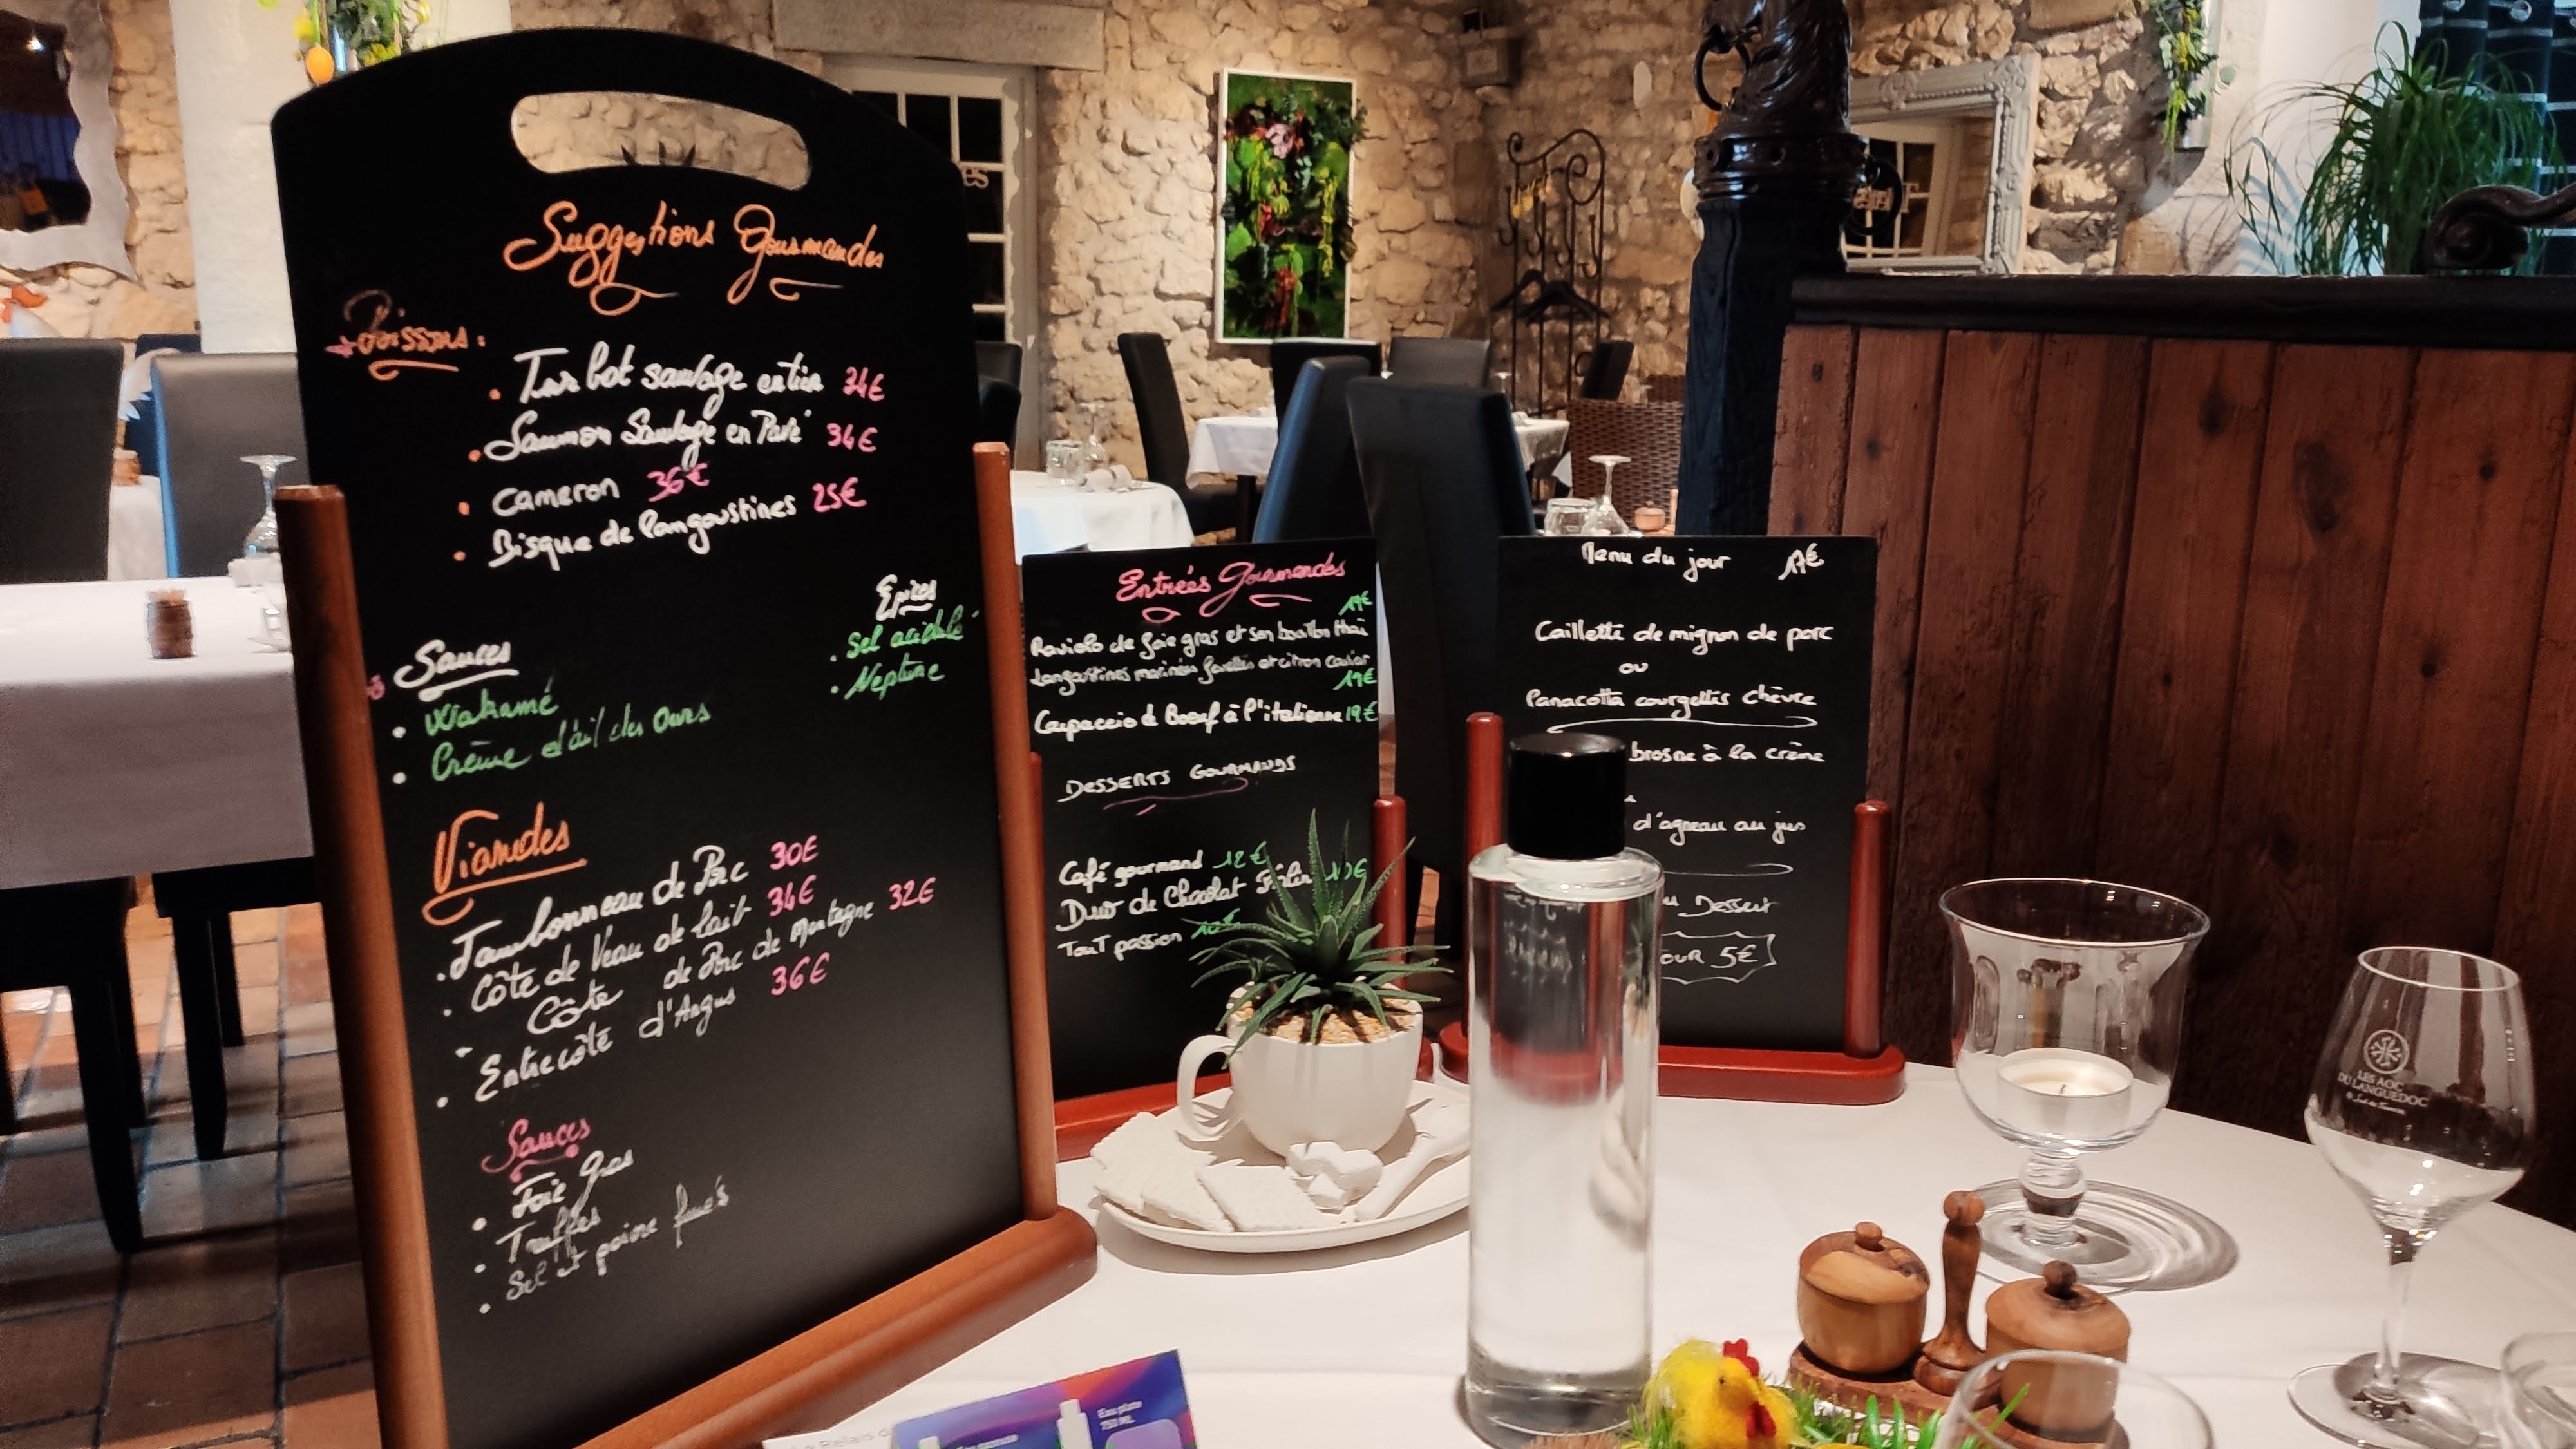 Suggestions Gourmandes
Poissons :
• Turbot sauvage entier 34€
• Saumon Sauvage en Pavé 34€
• Cameron 36€
• Bisque de langoustines 25€
Epices
• Sel acidulé
• Neptune
Sauces
• Wakamé
• Crème d'ail des ours
Viandes
• Jambonneau de Porc 30€
• Côte de Veau de lait 34€
- Côte de Porc de Montagne 32€
• Entrecôte d'Angus 36€
Sauces
• Foie gras
• Truffes
• Sel et poivre fumés
Entrées Gourmandes
19€
Raviolo de foie gras et son bouillon thaï
Langoustines marinées et citron caviar
19€
Carpaccio de Boeuf à l'italienne 19€
DESSERTS GOURMANDS
Café gourmand 12€
Duo de Chocolat
Tout passion
Menu du jour 17€
Caillette de mignon de porc
ou
Panacotta courgettes chèvre
à la crème
d'agneau au jus
Dessert
5€
LES AOC
DU LANGUEDOC
Relais
Eau plate
750 ML